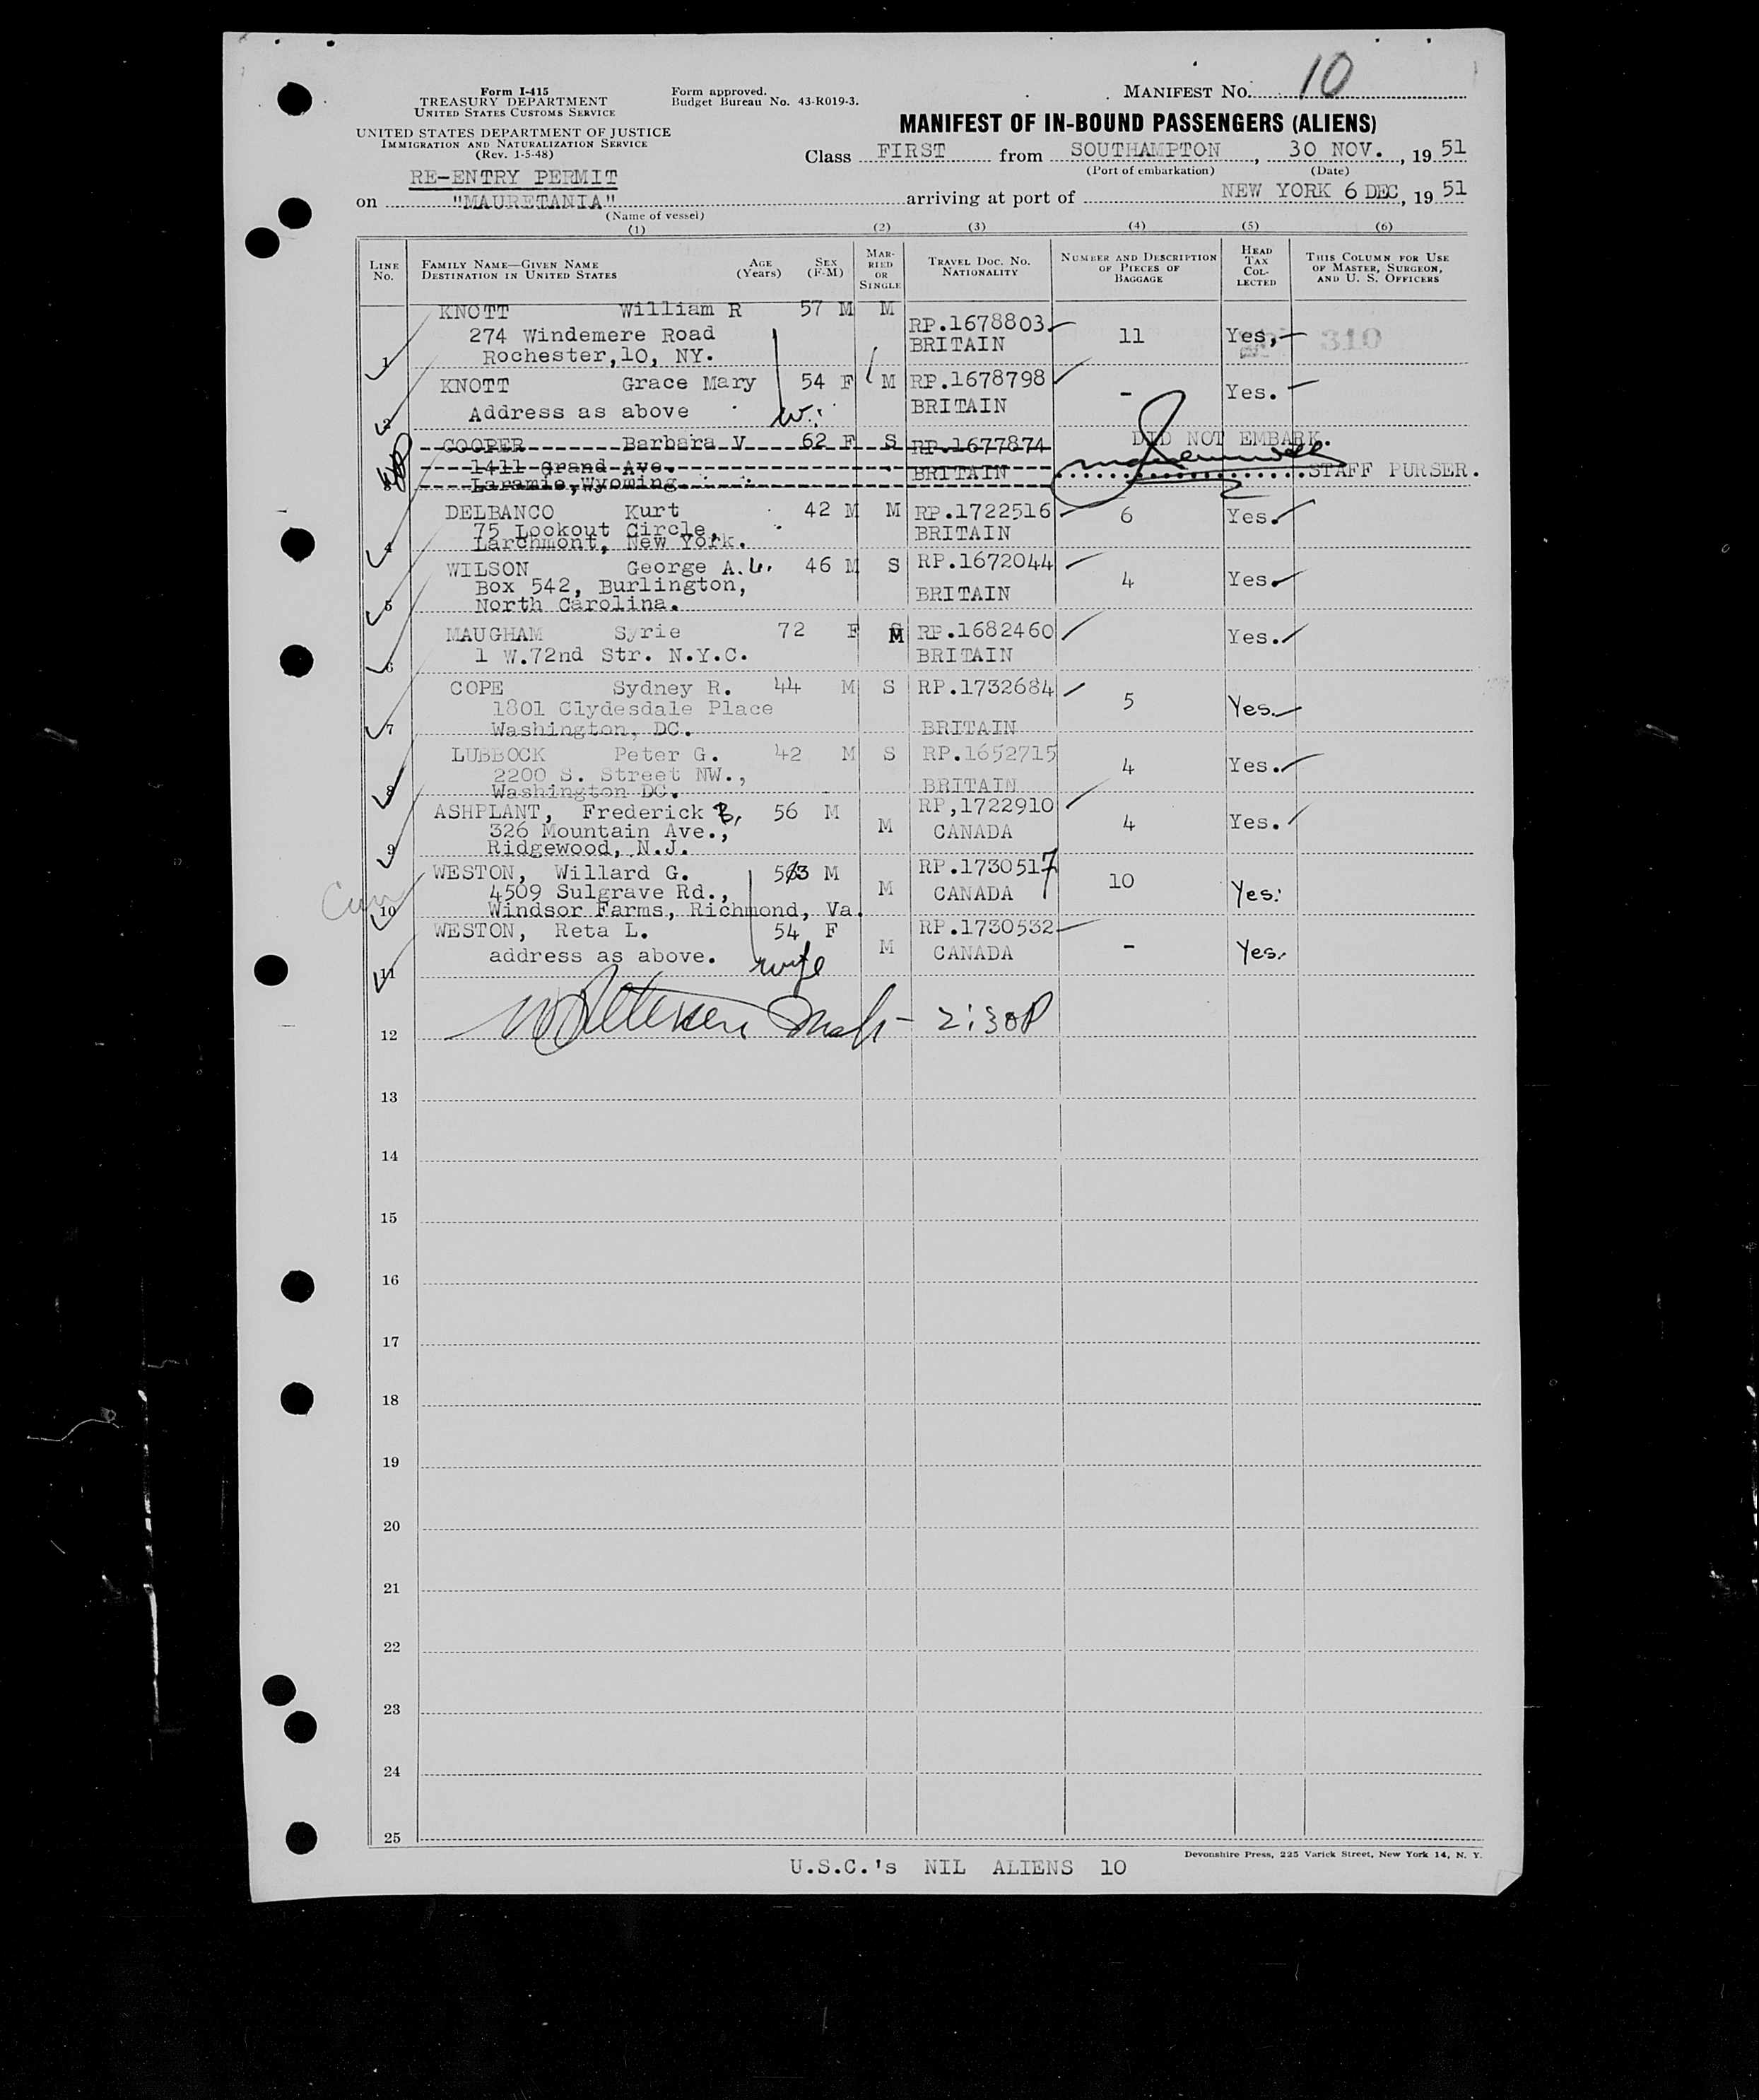 Form I-415
TREASURY DEPARTMENT
UNITED STATES CUSTOMS SERVICE
UNITED STATES DEPARTMENT OF JUSTICE
IMMIGRATION AND NATURALIZATION SERVICE
(Rev. 1-5-48)
Form approved.
Budget Bureau No. 43-R019-3.
MANIFEST No. 10
MANIFEST OF IN-BOUND PASSENGERS (ALIENS)
Class FIRST from SOUTHAMPTON, 30 NOV., 19 51
(Port of embarkation) (Date)
RE-ENTRY PERMIT
on "MAURETANIA" arriving at port of NEW YORK 6 DEC, 19 51
(Name of vessel)
(1) (2) (3) (4) (5) (6)
LINE No. FAMILY NAME—GIVEN NAME DESTINATION IN UNITED STATES AGE (Years) SEX (F-M) MARRIED OR SINGLE TRAVEL DOC. NO. NATIONALITY NUMBER AND DESCRIPTION OF PIECES OF BAGGAGE HEAD TAX COLLECTED THIS COLUMN FOR USE OF MASTER, SURGEON, AND U. S. OFFICERS
KNOTT William R 57 M M RP.1678803
274 Windemere Road BRITAIN 11 Yes, 310
1 Rochester,10, NY.
KNOTT Grace Mary 54 F M RP.1678798 - Yes.
2 Address as above W: BRITAIN
COOPER Barbara V 62 F S RP.1677874 DID NOT EMBARK.
1411 Grand Ave. BRITAIN STAFF PURSER.
3 Laramie,Wyoming.
DELBANCO Kurt 42 M M RP.1722516 6 Yes.
75 Lookout Circle, BRITAIN
4 Larchmont, New York.
WILSON George A. 46 M S RP.1672044
Box 542, Burlington, BRITAIN 4 Yes.
5 North Carolina.
MAUGHAM Syrie 72 F M RP.1682460 Yes.
6 1 W.72nd Str. N.Y.C. BRITAIN
COPE Sydney R. 44 M S RP.1732684 5 Yes.
1801 Clydesdale Place
7 Washington, DC. BRITAIN
LUBBOCK Peter G. 42 M S RP.1652715 4 Yes.
2200 S. Street NW.,
8 Washington DC. BRITAIN
ASHPLANT, Frederick B, 56 M M RP,1722910 4 Yes.
326 Mountain Ave., CANADA
9 Ridgewood, N.J.
WESTON, Willard G. 53 M M RP.1730517 10 Yes:
4509 Sulgrave Rd., CANADA
10 Windsor Farms, Richmond, Va.
WESTON, Reta L. 54 F M RP.1730532 - Yes.
11 address as above. wife CANADA
12 2:30P
13
14
15
16
17
18
19
20
21
22
23
24
25
Devonshire Press, 225 Varick Street, New York 14, N. Y.
U.S.C.'s NIL ALIENS 10